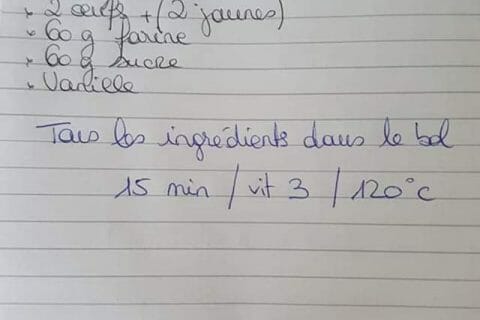 - 2 œufs + (2 jaunes)
- 60 g farine
- 60 g sucre
- Vanille
Tous les ingrédients dans le bol
15 min / vit 3 / 120°c